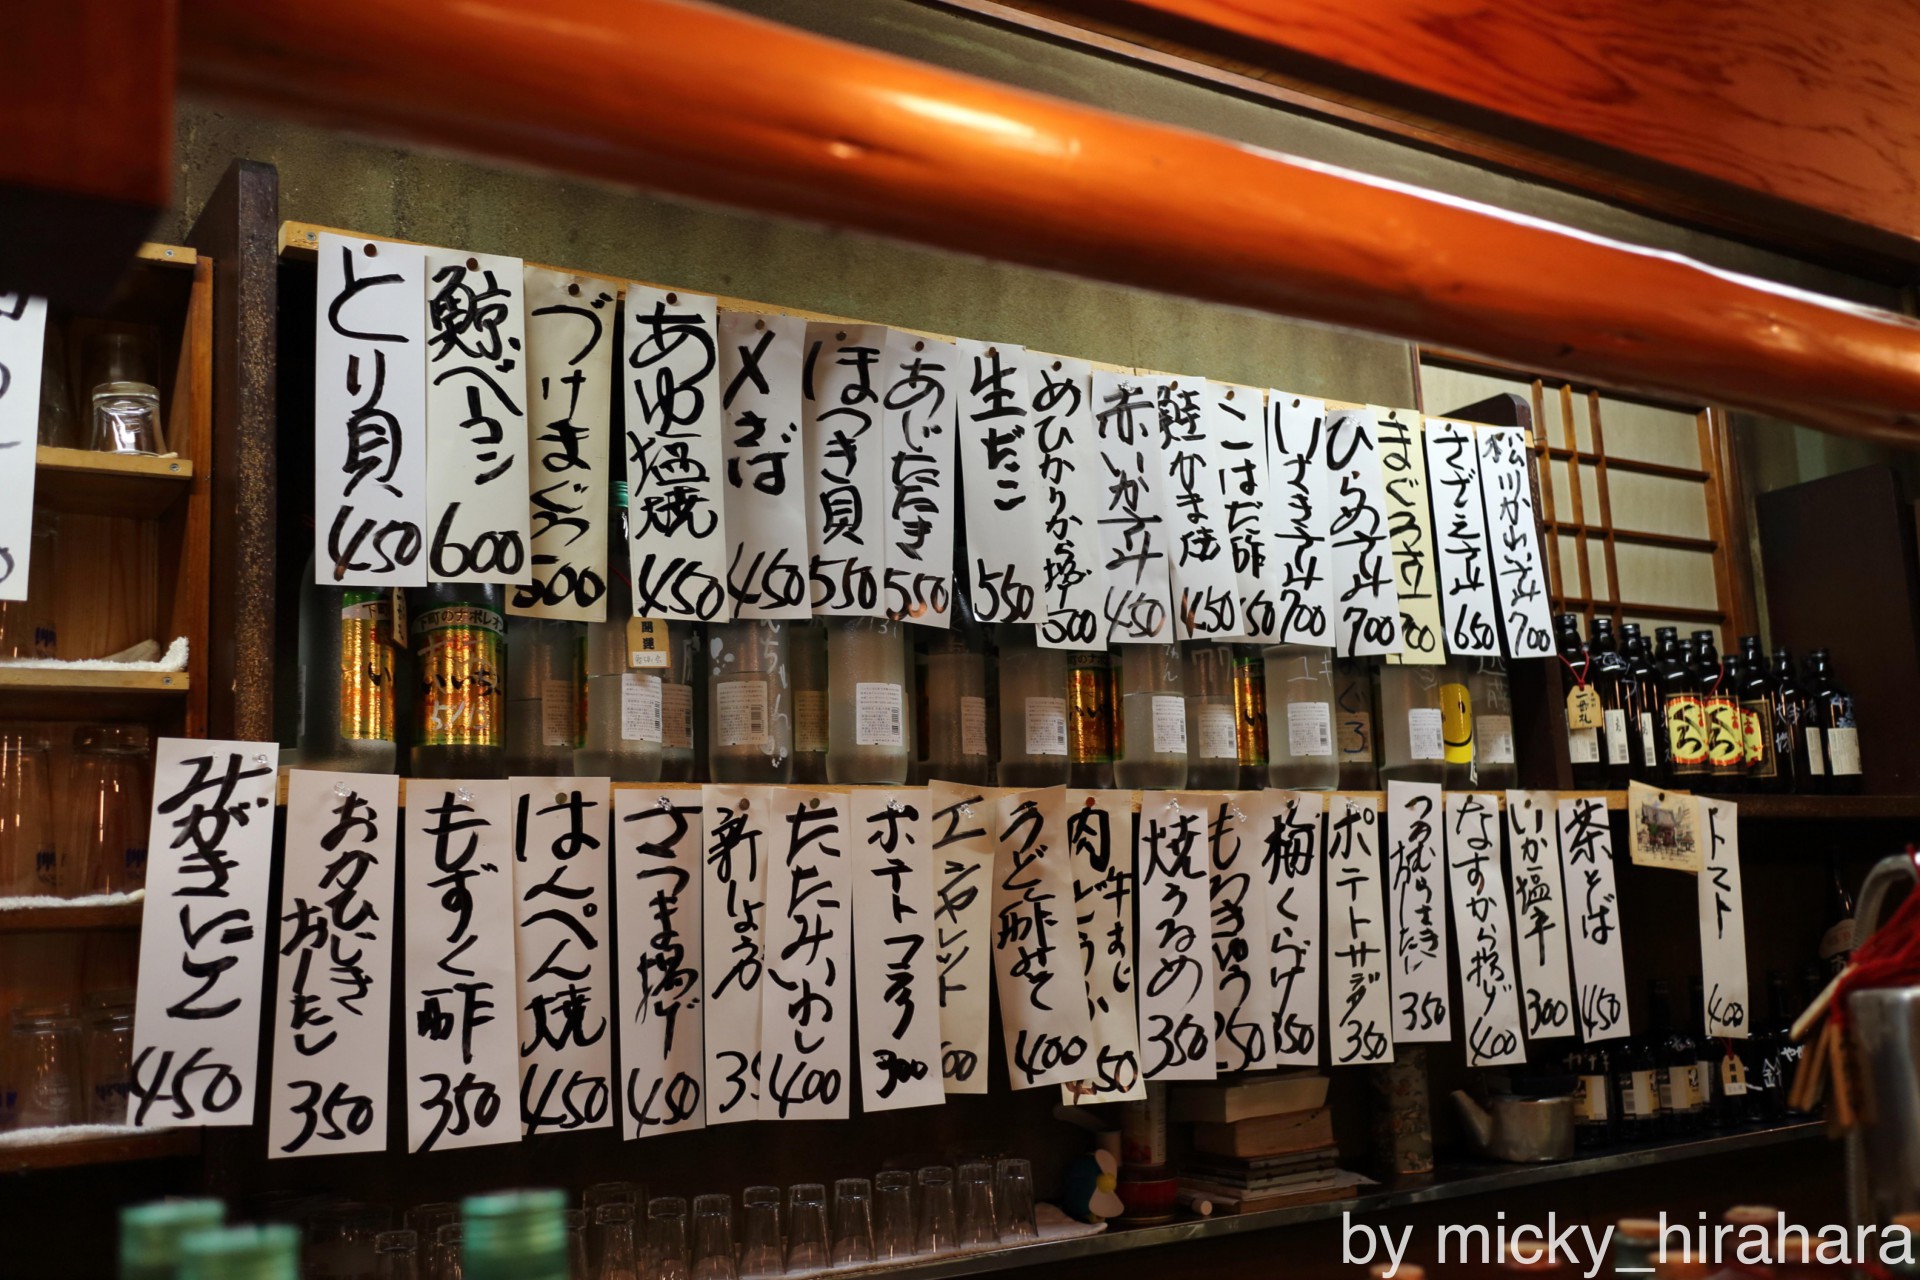 とり貝 450
鯨ベーコン 600
づけまぐろ 500
あゆ塩焼 450
〆さば 450
ほっき貝 550
あじたたき 550
生だこ 550
めひかりから揚 500
赤いか刺 450
鮭かま焼 450
こはだ酢
いさき刺 700
ひらめ刺 700
まぐろ
さざえ刺 650
松川かれい刺 700
下町のナポレオ
いいち
開運
みがきにしん 450
おかひじきおしたし 350
もずく酢 350
はんぺん焼 450
さつま揚げ 450
新しょうが
たたみいわし 400
ポテトフライ 300
エシャレット
うど酢みそ 400
肉どうふ
牛すじ
焼うるめ 350
もろきゅう
梅くらげ
ポテトサラダ 350
350
なすから揚げ 400
いか塩辛 300
茶そば 450
トマト 400
by micky_hirahara